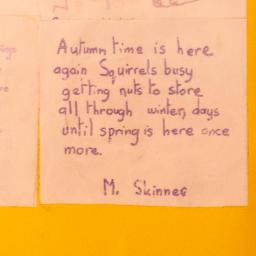 Autumn time is here
again Squirrels busy
getting nuts to store
all through winter, days
until spring is here once
more.
M. Skinner